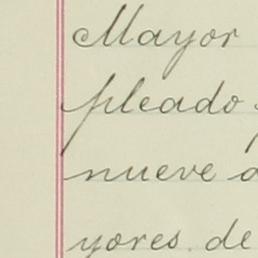 Mayor
pleado
nueve
yores. de